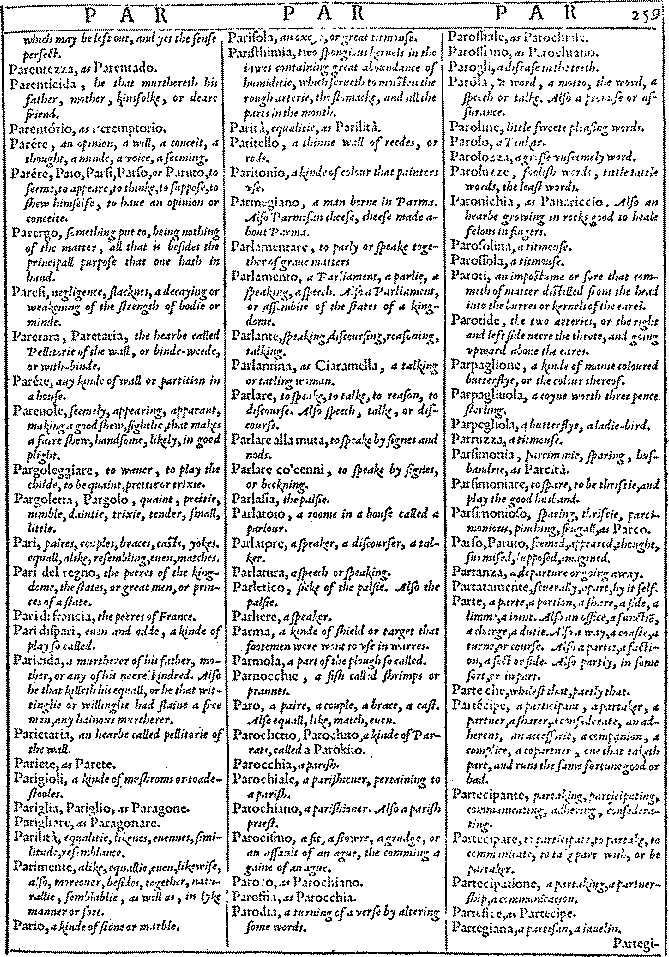 P A R
P A R
P A R
259
which may be left out, and yet the sense
perfect.
Parentezza, as Parentado.
Parenticida, he that murthereth his
father, mother, kinsfolke, or deare
friend.
Parentório, as Peremptorio.
Parére, an opinion, a will, a conceit, a
thought, a minde, a voice, a seeming.
Parére, Paio, Parsi, Parso, or Paruto, to
seeme, to appeare, to thinke, to suppose, to
shew himselfe, to have an opinion or
conceite.
Parergo, something put to, being nothing
of the matter, all that is besides the
principall purpose that one hath in
hand.
Paresi, negligence, slacknes, a decaying or
weakening of the strength of bodie or
minde.
Paretaria, the hearbe called
Pellitorie of the wall, or binde-weede,
or with-binde.
Paréte, any kinde of wall or partition in
a house.
Parevole, seemely, appearing, apparant,
making a good shew, sightlie, that makes
a faire shew, handsome, likely, in good
plight.
Pargoleggiare, to waver, to play the
childe, to be quaint, prettie or trixie.
Pargoletta, Pargolo, quaint, prettie,
nimble, daintie, trixie, tender, small,
little.
Pari, paires, couples, braces, casts, yokes.
equall, alike, resembling, even, matches.
Pari del regno, the peeres of the king-
dome, the states, or great men, or prin-
ces of a state.
Pari di francia, the peeres of France.
Pari dispari, even and odde, a kinde of
play so called.
Paricida, a murtherer of his father, mo-
ther, or any of his neere kindred. Also
he that killeth his equall, or he that wit-
tinglie or willinglie had slaine a free
man, any hainous murtherer.
Parietaria, an hearbe called pellitorie of
the wall.
Pariete, as Parete.
Parigioli, a kinde of mushroms or toade-
stooles.
Pariglia, Pariglio, as Paragone.
Parigliare, as Paragonare.
Parilità, equalitie, likenes, evennes, simi-
litude, resemblance.
Parimente, alike, equallie, even, likewise,
also, moreover, besides, together, natu-
rallie, semblablie, as well as, in lyke
manner or sort.
Pario, a kinde of stone or marble.
Parisola, an oxe, or great titmouse.
Paristhimia, two spongious kernels in the
iawes containing great abundance of
humiditie, which serveth to moisten the
rough arterie, the stomacke, and all the
parts in the mouth.
Parità, equalitie, as Parilità.
Paritello, a thinne wall of reedes, or
rods.
Paritonio, a kinde of colour that painters
use.
Parmegiano, a man borne in Parma.
Also Parmisan cheese, cheese made a-
bout Parma.
Parlamentare, to parly or speake toge-
ther of grave matters
Parlamento, a Parliament, a parlie, a
speaking, a speech. Also a Parliament,
or assemblie of the states of a king-
dome.
Parlante, speaking, discoursing, reasoning,
talking.
Parlantina, as Ciaramella, a talking
or tatling woman.
Parlare, to speake, to talke, to reason, to
discourse. Also speech, talke, or dis-
course.
Parlare alla muta, to speake by signes and
nods.
Parlare co'cenni, to speake by signes,
or beckning.
Parlasia, the palsie.
Parlatoio, a roome in a house called a
parlour.
Parlatore, a speaker, a discourser, a tal-
ker.
Parlatura, a speech or speaking.
Parletico, sicke of the palsie. Also the
palsie.
Parliere, a speaker.
Parma, a kinde of shield or target that
footemen were wont to use in warres.
Parmola, a part of the plough so called.
Parnocchie, a fish called shrimps or
prannes.
Paro, a paire, a couple, a brace, a cast.
Also equall, like, match, even.
Parochetto, Parochito, a kinde of Par-
rate, called a Parokito.
Parocchia, a parish.
Parochiale, a parishioner, pertaining to
a parish.
Parochiano, a parishioner. Also a parish
priest.
Parocismo, a fit, a sowre, a grudge, or
an assault of an ague, the comming a
gaine of an ague.
Parofo, as Parochiano.
Paroffia, as Parocchia.
Parodia, a turning of a verse by altering
some words.
Paroffiale, as Parochiale.
Paroffiano, as Parochiano.
Parogli, a disease in the teeth.
Parola, a word, a motto, the word, a
speech or talke. Also a promise or as-
surance.
Paroline, little sweete pleasing words.
Parolo, a
Parolozza, a grosse unseemely word.
Paroluzze, foolish words, tittle tattle
words, the least words.
Paronichia, as Panariccio. Also an
hearbe growing in rocks good to heale
felons in fingers.
Parosolina, a titmouse.
Parossola, a titmouse.
Paroti, an impostume or sore that com-
meth of matter distilled from the head
into the burres or kernels of the eares.
Parotide, the two arteries, or the right
and left side neere the throte, and going
upward above the eares.
Parpaglione, a kinde of maine coloured
butterflye, or the colour thereof.
Parpagliuola, a coyne worth three pence
starling.
Parpegliola, a butterflye, a ladie-bird.
Parruzza, a titmouse.
Parsimonia, parcimonie, sparing, hus-
bandrie, as Parcità.
Parsimoniare, to spare, to be thriftie, and
play the good husband.
Parsimonioso, sparing, thriftie, parci-
monious, pinching, frugall, as Parco.
Parso, Paruto, seemed, appeared, thought,
surmised, supposed, imagined.
Partanza, a departure or going away.
Partatamente, severally, apart, by it self.
Parte, a parte, a portion, a share, a side, a
limme, a ioint. Also an office, a function,
a charge, a dutie. Also a way, a coaste, a
turne, or course. Also a partie, a facti-
on, a sect or side. Also partly, in some
sort, or in part.
Parte che, whilest that, partly that.
Partécipe, a participant, a partaker, a
partner, a sharer, a confederate, an ad-
herent, an accessarie, a companion, a
complice, a copartner, one that taketh
part, and runs the same fortune good or
bad.
Partecipante, partaking, participating,
communicating, adhering, confedera-
ting.
Partecipare, to participate, to partake, to
communicate, to take part with, or be
partaker.
Partecipatione, a partaking, a partner-
ship, a communication.
Partefice, as Partecipe.
Partegiana, a partesan, a iavelin.
Partegi-